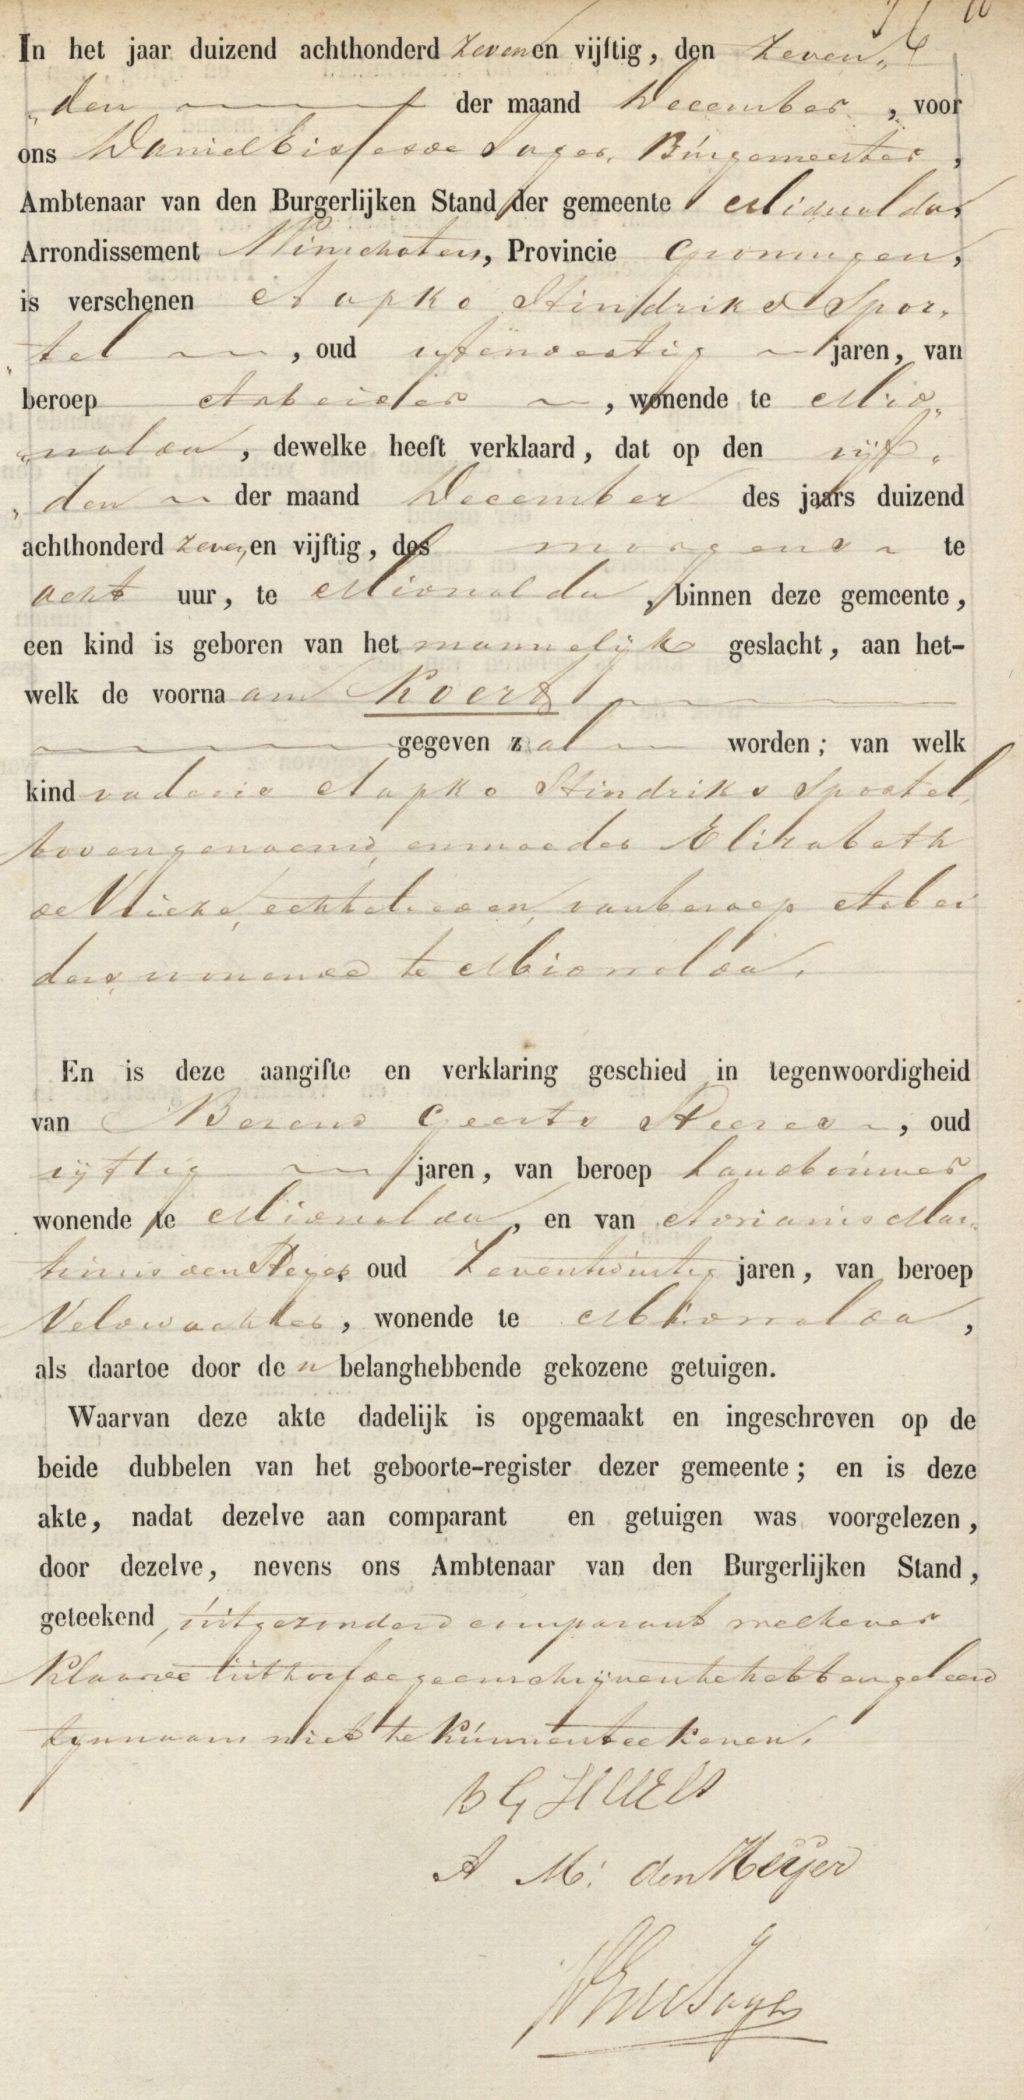 In het jaar duizend achthonderd zeven en vijftig, den zeven„
„den der maand December, voor
ons Daniel Eisse de Sager, Burgemeester,
Ambtenaar van den Burgerlijken Stand der gemeente Midwolda,
Arrondissement Winschoten, Provincie Groningen,
is verschenen Aapko Hindriks Spor„
„tel, oud jaren, van
beroep Arbeider, wonende te Mid„
„wolda, dewelke heeft verklaard, dat op den vijf„
„den der maand December des jaars duizend
achthonderd zeven en vijftig, des morgens te
acht uur, te Midwolda, binnen deze gemeente,
een kind is geboren van het mannelijk geslacht, aan het-
welk de voornaam Koert
gegeven zal worden; van welk
kind vader is Aapko Hindriks Sportel,
bovengenoemd, en moeder Elizabeth
de Vrieze, echtelieden, van beroep Arbei
ders, wonende te Midwolda.
En is deze aangifte en verklaring geschied in tegenwoordigheid
van Berend Geerts Heeres, oud
vijftig jaren, van beroep Landbouwer
wonende te Midwolda, en van Adrianus Mar„
tinus den Heyer, oud Zeventwintig jaren, van beroep
Veldwachter, wonende te Midwolda,
als daartoe door den belanghebbende gekozene getuigen.
Waarvan deze akte dadelijk is opgemaakt en ingeschreven op de
beide dubbelen van het geboorte-register dezer gemeente; en is deze
akte, nadat dezelve aan comparant en getuigen was voorgelezen,
door dezelve, nevens ons Ambtenaar van den Burgerlijken Stand,
geteekend, uitgezonderd comparant welke ver
klaarde uit hoofde geen schrijven te hebben geleerd
zijn naam niet te kunnen teekenen.
B G Heeres
A M: den Heyer
DE de Sager